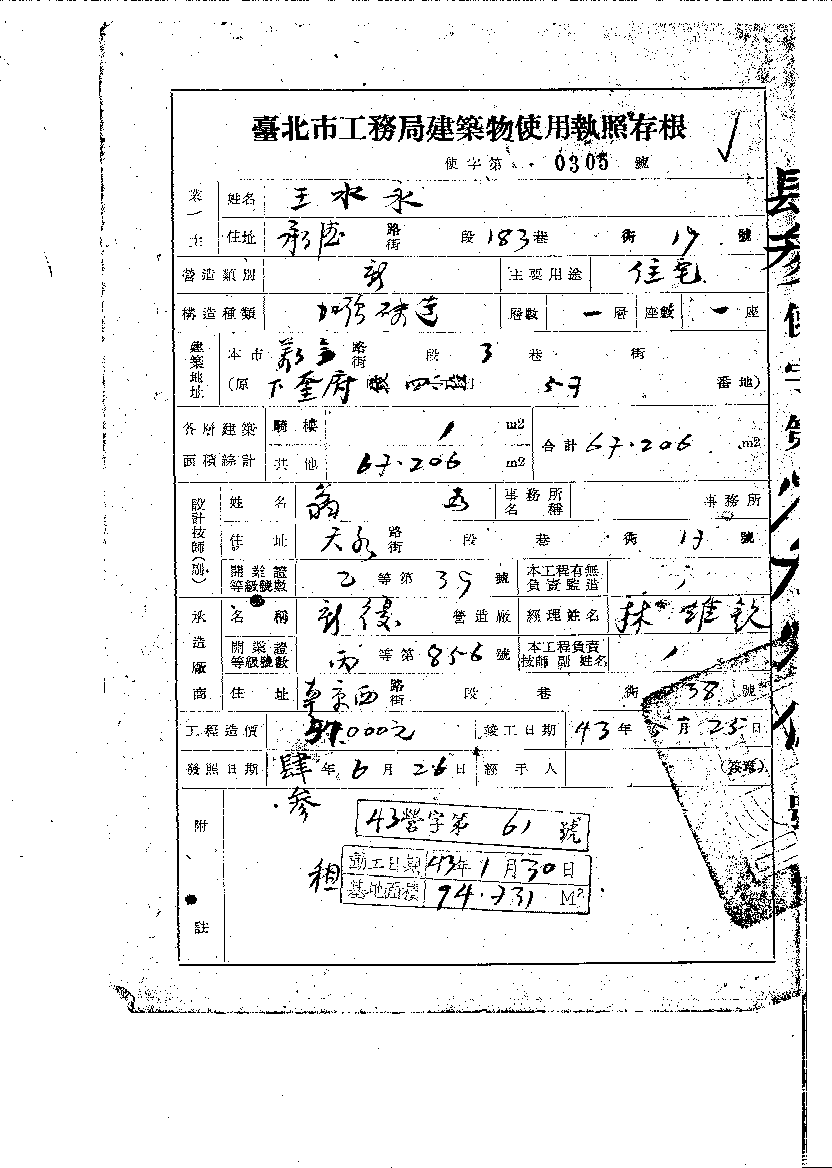 臺北市工務局建築物使用執照存根
使字第 0305 號
業主 姓名 王水永
住址 承德 路街 段 183 巷 街 17 號
營造類別 新 主要用途 住宅
構造種類 加強磚造 層數 一 層 座數 一 座
建築地址 本市 路街 段 3 巷 街
(原 下奎府 番地)
各層建築面積總計 騎樓 / m2 合計 67.206 m2
其他 67.206 m2
設計技師(副) 姓名 翁 事務所名稱 事務所
住址 天水 路街 段 巷 街 17 號
開業證等級號數 乙 等第 39 號 本工程有無負責監造 /
承造廠商 名稱 新復 營造廠 經理姓名 林雄欽
開業證等級號數 丙 等第 856 號 本工程負責技師副姓名 /
住址 南京西 路街 段 巷 街 38 號
工程造價 000元 竣工日期 43 年 月 25 日
發照日期 肆參 年 6 月 26 日 經手人 (簽璋)
附註
43營字第 61 號
租
動工日期 43年1月30日
基地面積 94.731 M²